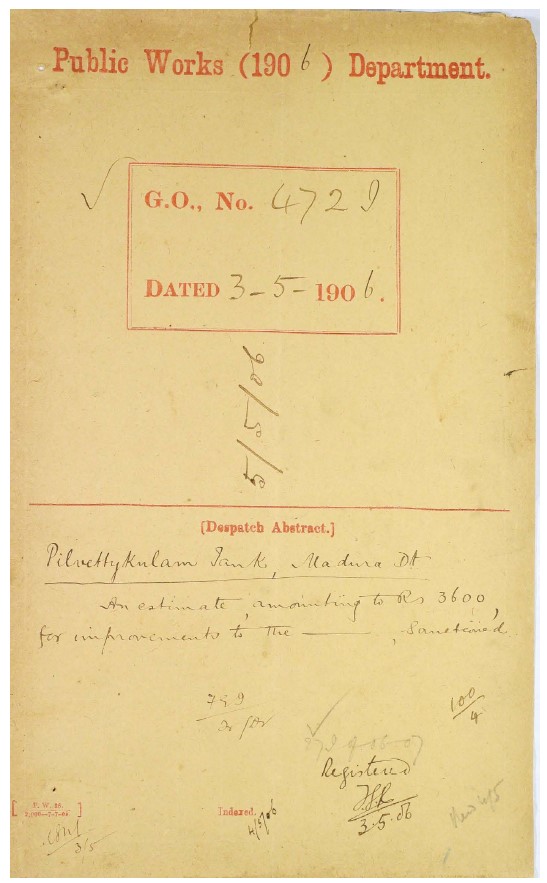 Public Works (1906) Department.
G.O., No. 472 I
DATED 3-5-1906.
5/5/06
[Despatch Abstract.]
Pilvettykulam Tank, Madura Dt
An estimate, amounting to Rs 3600,
for improvements to the ——— , Sanctioned.
100/4
Registered
3.5.06
[ P. W. 25. ]
Indexed.
4/5/06
3/5